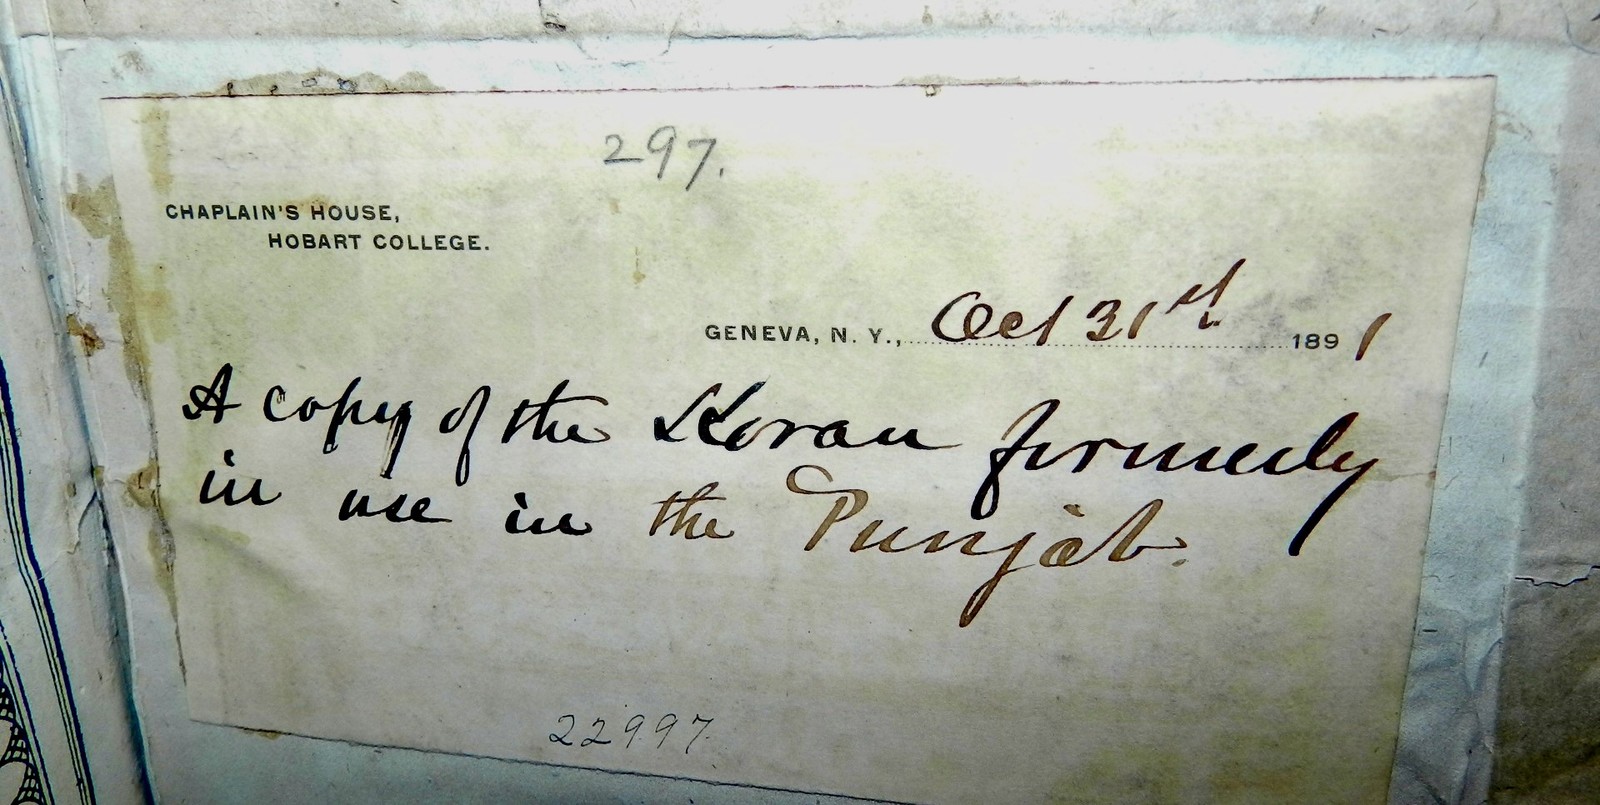 297.
CHAPLAIN'S HOUSE,
HOBART COLLEGE.
GENEVA, N. Y., Oct 31st 1891
A copy of the Koran formerly
in use in the Punjab.
22997.